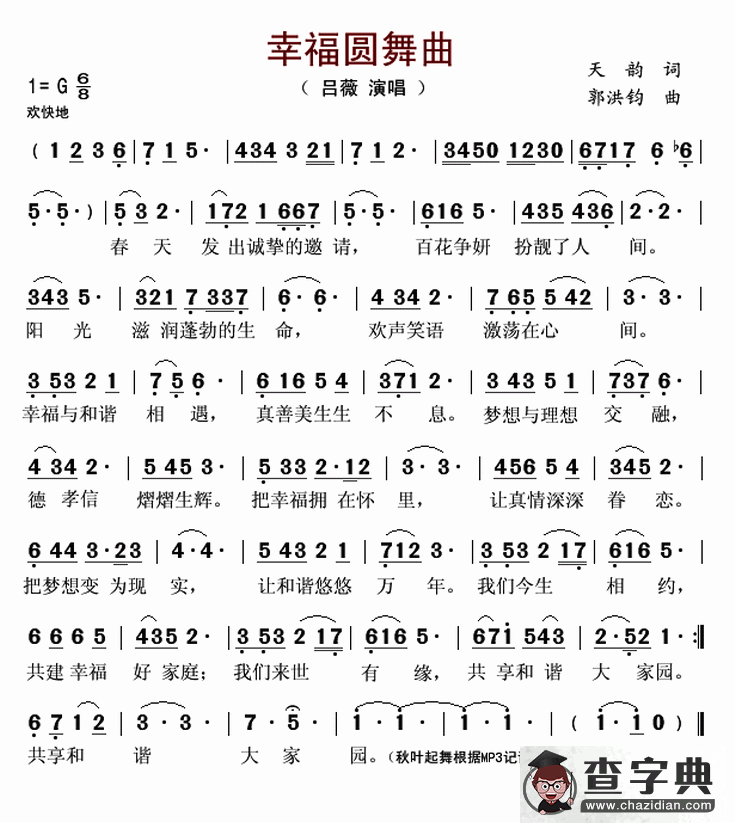 幸福圆舞曲
（ 吕薇 演唱 ）
天 韵 词
郭洪钧 曲
1= G 6/8
欢快地
( 1 2 3 6 | 7 1 5· | 434 3 21 | 7 1 2· | 3450 1230 | 6717 6 ♭6 |
5·5· ) | 5 3 2· | 172 1 667 | 5·5· | 616 5· | 435 436 | 2·2· |
春 天 发 出诚挚的邀 请， 百花争妍 扮靓了人 间。
343 5· | 321 7 337 | 6· 6· | 4 34 2· | 7 65 5 42 | 3· 3· |
阳 光 滋 润蓬勃的生 命， 欢声笑语 激荡在心 间。
3 53 2 1 | 7 5 6· | 6 16 5 4 | 371 2· | 3 43 5 1 | 737 6· |
幸福与和谐 相 遇， 真善美生生 不 息。 梦想与理想 交 融，
4 34 2· | 5 45 3· | 5 33 2·12 | 3· 3· | 456 5 4 | 345 2· |
德 孝信 熠熠生辉。 把幸福拥 在怀 里， 让真情深深 眷 恋。
6 44 3·23 | 4·4· | 5 43 2 1 | 712 3· | 3 53 2 17 | 616 5· |
把梦想变 为现 实， 让和谐悠悠 万 年。 我们今生 相 约，
6 6 6 5 | 435 2· | 3 53 2 17 | 616 5· | 671 543 | 2·52 1· :|
共建 幸福 好 家庭； 我们来世 有 缘， 共 享和 谐 大 家园。
6 7 1 2 | 3· 3· | 7· 2· | 1·1· | 1·1· | ( 1· 1 0 ) |
共享和 谐 大 家 园。（秋叶起舞根据MP3记
查字典
www.chazidian.com